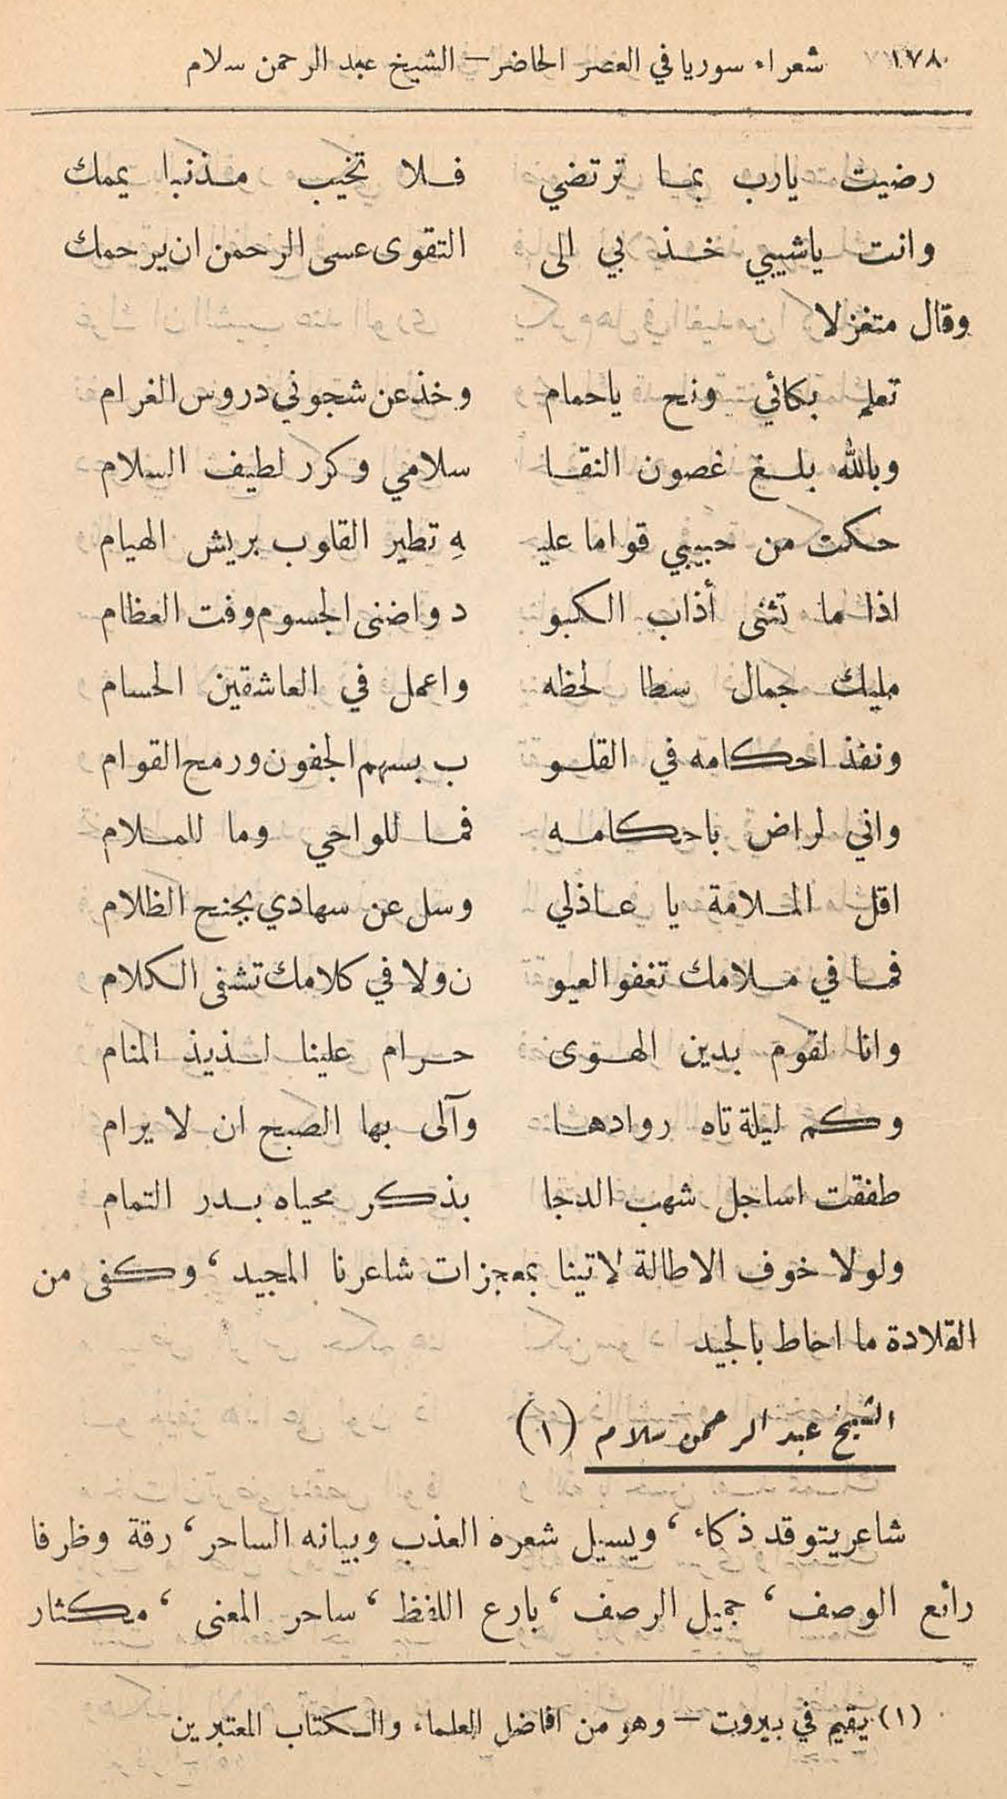 ١٧٨ شعراء سوريا في العصر الحاضر — الشيخ عبد الرحمن سلام
رضيت يارب بما ترتضي فلا تخيب مذنبا يممك
وانت ياشيبي خذ بي الى التقوى عسى الرحمن ان يرحمك
وقال متغزلا
تعلم بكائي ونح ياحمام وخذ عن شجوني دروس الغرام
وبالله بلغ غصون النقا سلامي وكرر لطيف السلام
حكت من حبيبي قواما علي‍ هِ تطير القلوب بريش الهيام
اذا ما تثنى أذاب الكبو د واضنى الجسوم وفت العظام
مليك جمال سطا لحظه واعمل في العاشقين الحسام
ونفذ احكامه في القلو ب بسهم الجفون ورمح القوام
واني لراض باحكامه فما للواحي وما للملام
اقل الملامة يا عاذلي وسل عن سهادي بجنح الظلام
فما في ملامك تغفو العيو ن ولا في كلامك تشفى الكلام
وانا لقوم بدين الهوى حرام علينا لذيذ المنام
وكم ليلة تاه روادها وآلى بها الصبح ان لا يرام
طفقت اساجل شهب الدجا بذكر محياه بدر التمام
ولولا خوف الاطالة لاتينا بمعجزات شاعرنا المجيد ، وكفى من
القلادة ما احاط بالجيد
الشيخ عبد الرحمن سلام (١)
شاعر يتوقد ذكاء ، ويسيل شعره العذب وبيانه الساحر ، رقة وظرفا
رائع الوصف ، جميل الرصف ، بارع اللفظ ، ساحر المعنى ، مكثار
(١) يقيم في بيروت — وهو من افاضل العلماء والكتاب المعتبرين